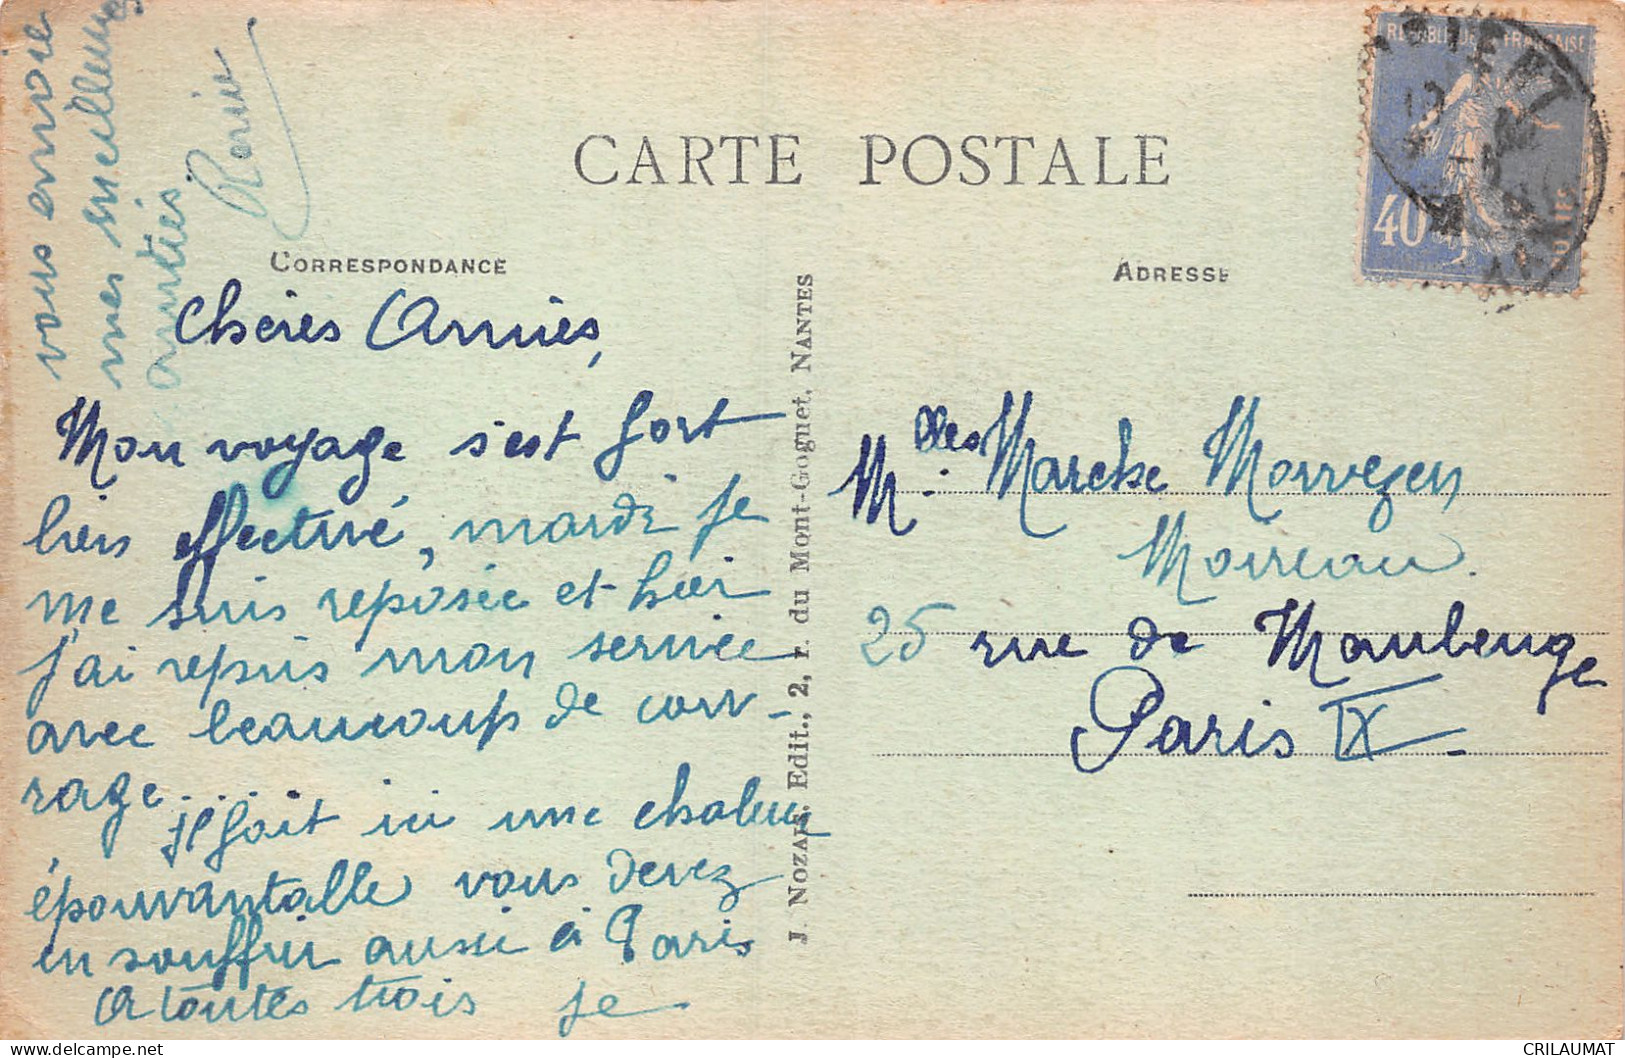 CARTE POSTALE
CORRESPONDANCE
ADRESSE
Chères Amies,
Mon voyage s'est fort
bien effectué, mardi je
me suis reposée et hier
j'ai repris mon service
avec beaucoup de cou-
rage.
Il fait ici une chaleur
épouvantable vous devez
en souffrir aussi à Paris
A toutes trois je
vous envoie
mes meilleures
amitiés
J. NOZAIS, Edit., 2, r. du Mont-Goguet, NANTES
REPUBLIQUE FRANÇAISE
40
POSTES
Melles Morvezen
Moireau.
25 rue de Maubeuge
Paris IX
www.delcampe.net
CRILAUMAT